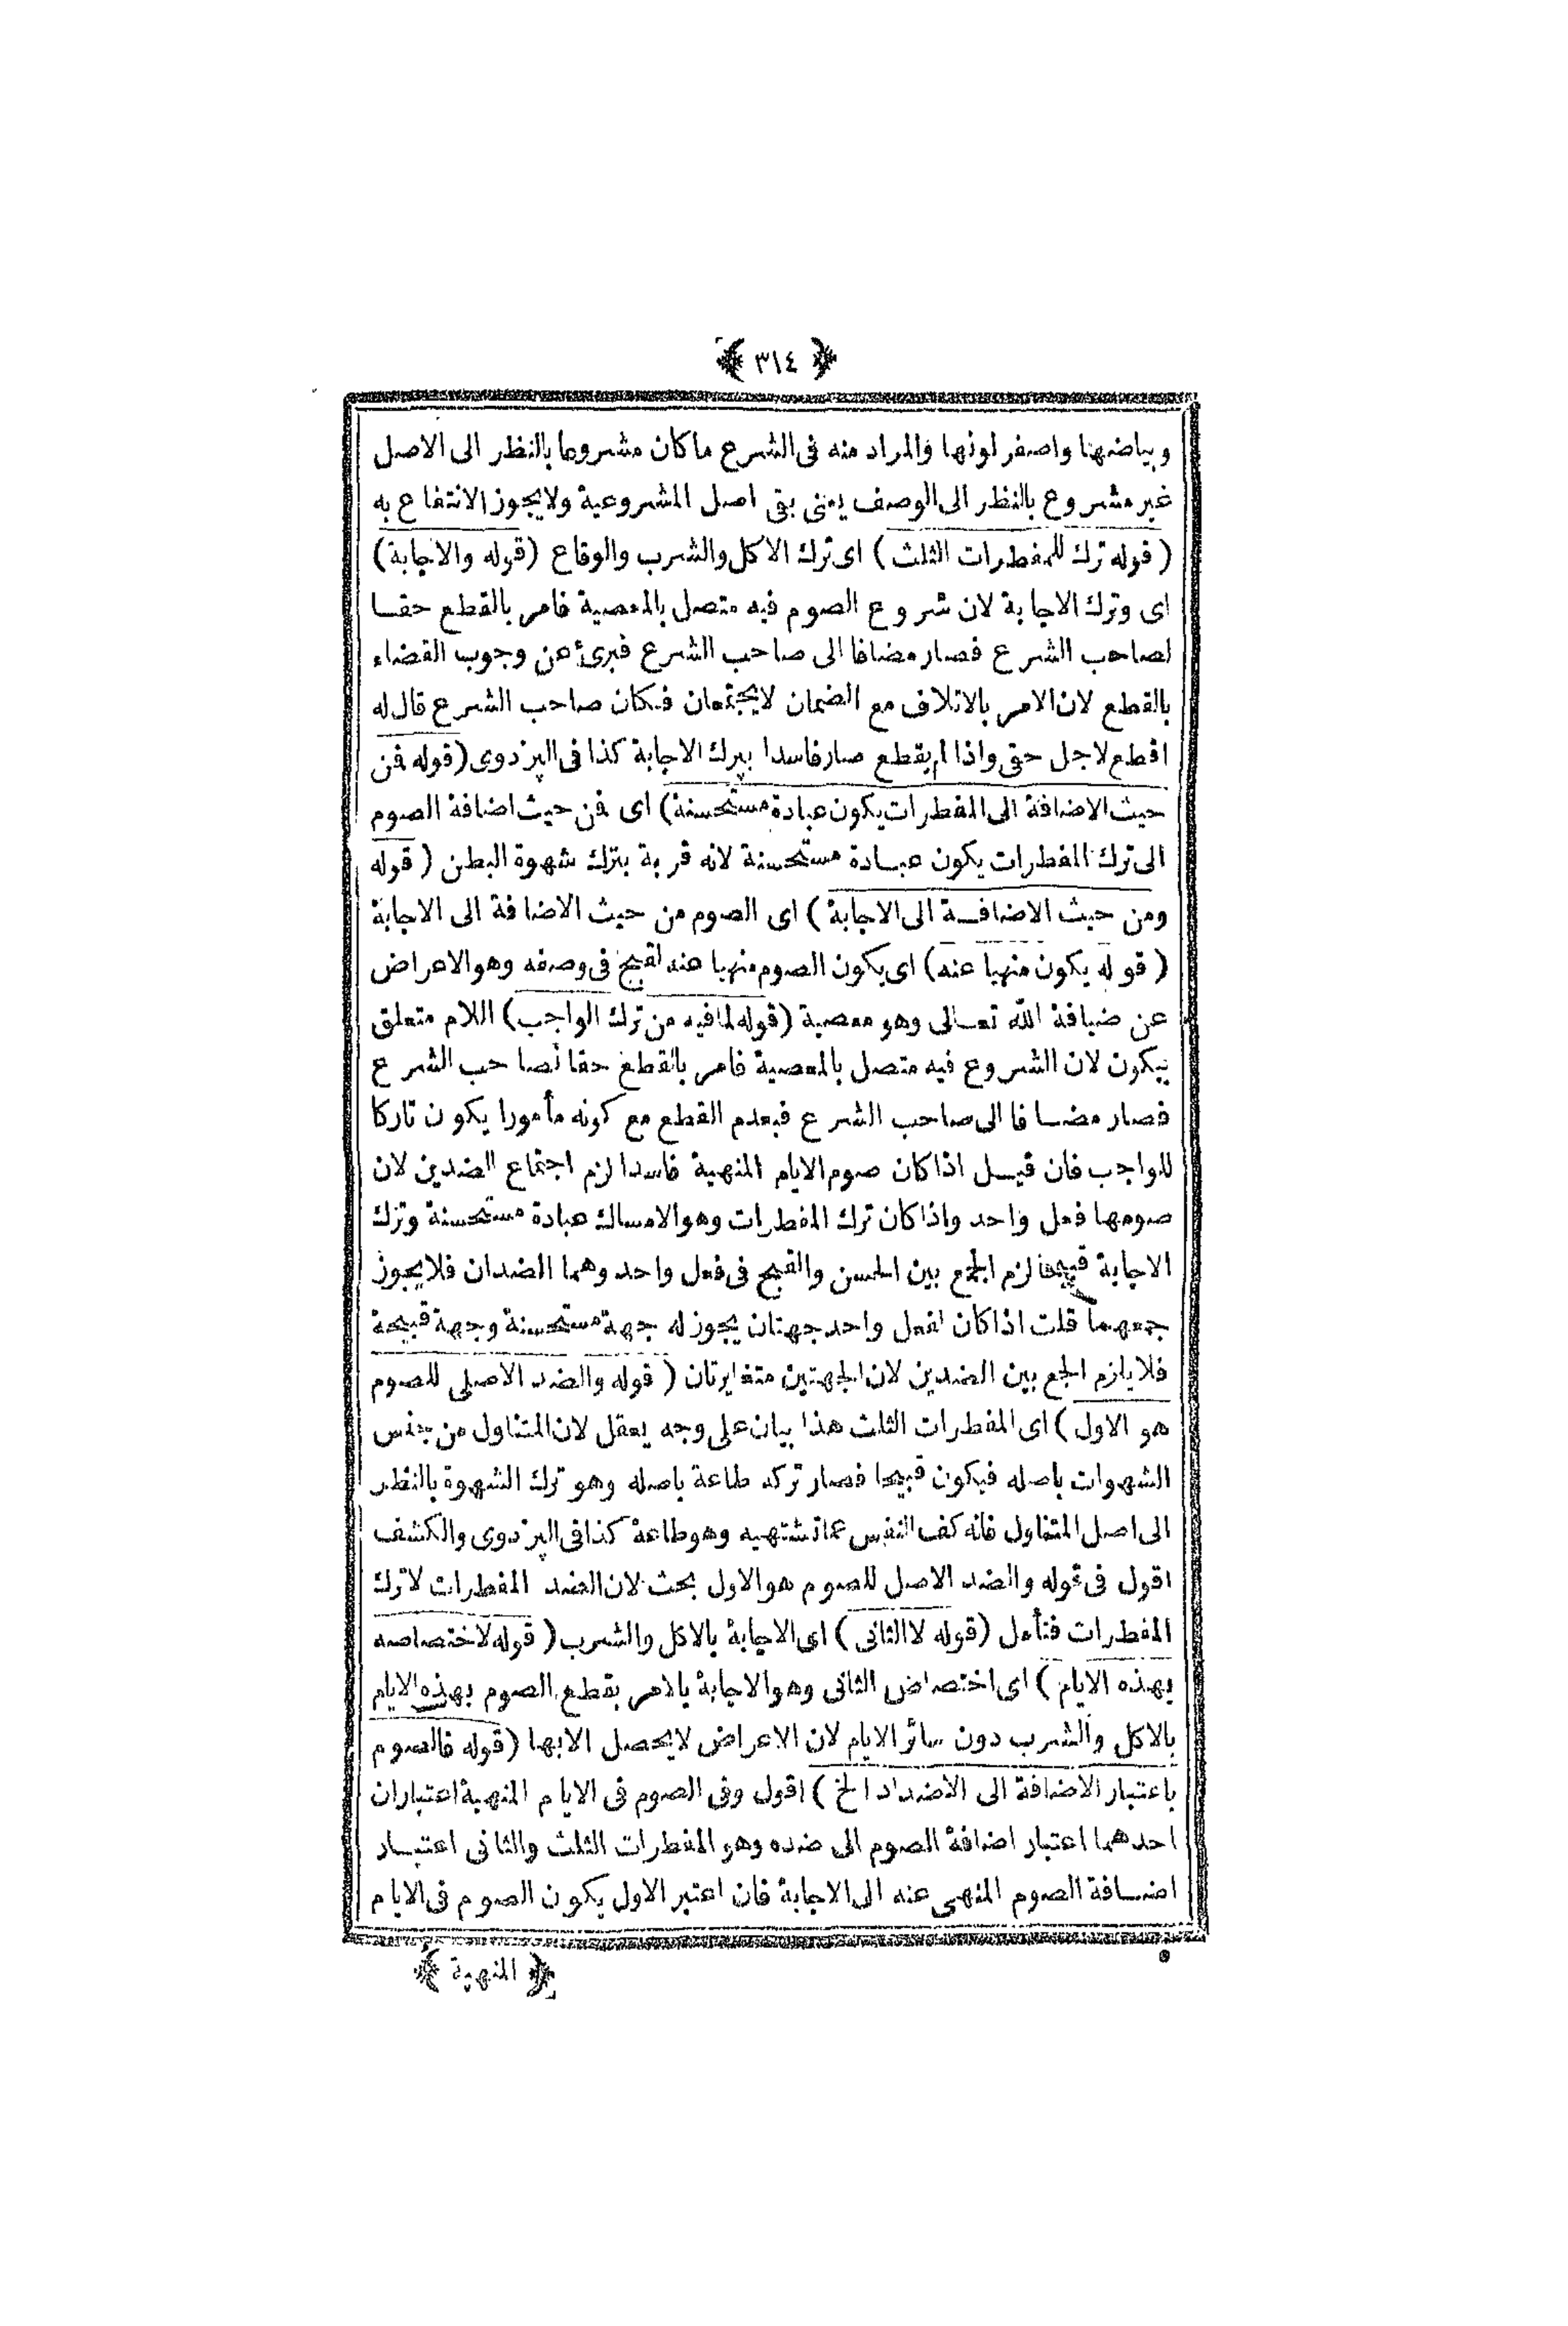 ﴿ ٣١٤ ﴾
وبياضهنا واصفر لونها والمراد منه فى الشرع ماكان مشروعا بالنظر الى الاصل
غير مشروع بالنظر الى الوصف يعنى بقى اصل المشروعية ولايجوز الانتفاع به
( قوله ترك للمفطرات الثلث ) اى ترك الاكل والشرب والوقاع (قوله والاجابة)
اى وترك الاجابة لان شروع الصوم فيه متصل بالمعصية فامر بالقطع حقا
لصاحب الشرع فصار مضافا الى صاحب الشرع فبرئ عن وجوب القضاء
بالقطع لان الامر بالاتلاف مع الضمان لايجتمعان فكان صاحب الشرع قال له
اقطع لاجل حقى واذا لم يقطع صار فاسدا بترك الاجابة كذا فى البزدوى (قوله فمن
حيث الاضافة الى المفطرات يكون عبادة مستحسنة) اى فمن حيث اضافة الصوم
الى ترك المفطرات يكون عبادة مستحسنة لانه قربة بترك شهوة البطن ( قوله
ومن حيث الاضافة الى الاجابة ) اى الصوم من حيث الاضافة الى الاجابة
( قوله يكون منهيا عنه) اى يكون الصوم منهيا عنه لقبح فى وصفه وهو الاعراض
عن ضيافة الله تعالى وهو معصية (قوله لمافيه من ترك الواجب) اللام متعلق
بيكون لان الشروع فيه متصل بالمعصية فامر بالقطع حقا لصاحب الشرع
فصار مضافا الى صاحب الشرع فبعدم القطع مع كونه مأمورا يكون تاركا
للواجب فان قيل اذا كان صوم الايام المنهية فاسدا لزم اجتماع الضدين لان
صومها فعل واحد واذا كان ترك المفطرات وهو الامساك عبادة مستحسنة وترك
الاجابة قبيحا لزم الجمع بين الحسن والقبح فى فعل واحد وهما الضدان فلايجوز
جمعهما قلت اذا كان لفعل واحد جهتان يجوز له جهة مستحسنة وجهة قبيحة
فلايلزم الجمع بين الضدين لان الجهتين متغايرتان ( قوله والضد الاصلى للصوم
هو الاول ) اى المفطرات الثلث هذا بيان على وجه يعقل لان المتناول من جنس
الشهوات باصله فيكون قبيحا فصار تركه طاعة باصله وهو ترك الشهوة بالنظر
الى اصل المتناول فانه كف النفس عما تشتهيه وهو طاعة كذا فى البزدوى والكشف
اقول فى قوله والضد الاصل للصوم هو الاول بحث لان الضد المفطرات لا ترك
المفطرات فتأمل (قوله لا الثانى ) اى الاجابة بالاكل والشرب ( قوله لاختصاصه
بهذه الايام ) اى اختصاص الثانى وهو الاجابة بالامر بقطع الصوم بهذه الايام
بالاكل والشرب دون سائر الايام لان الاعراض لايحصل الابها (قوله فالصوم
باعتبار الاضافة الى الاضداد الخ ) اقول وفى الصوم فى الايام المنهية اعتباران
احدهما اعتبار اضافة الصوم الى ضده وهو المفطرات الثلث والثانى اعتبار
اضافة الصوم المنهى عنه الى الاجابة فان اعتبر الاول يكون الصوم فى الايام
﴿ المنهية ﴾